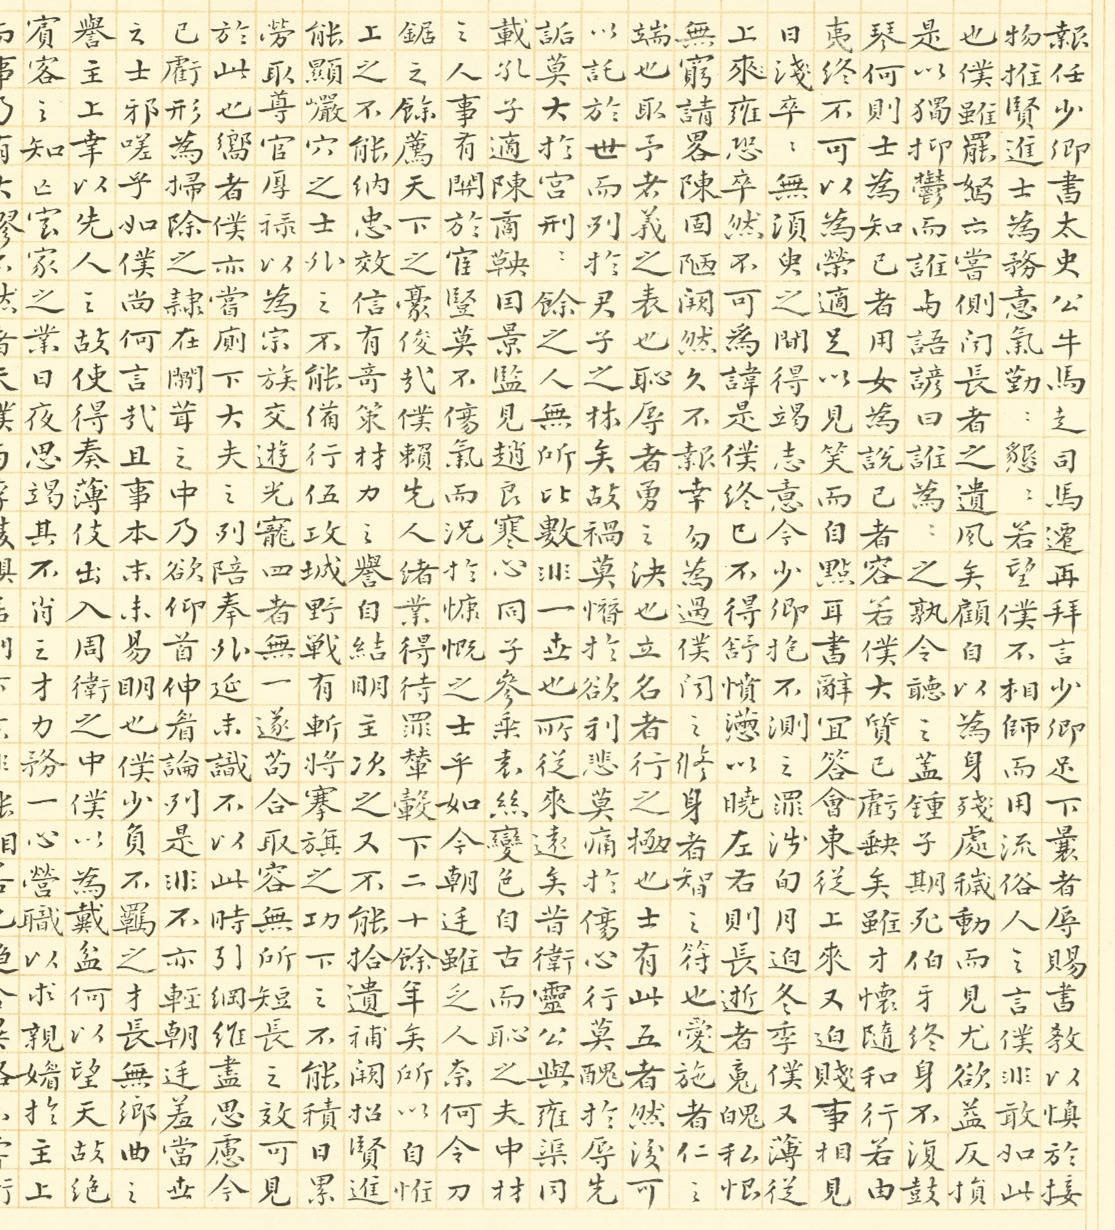 報任少卿書太史公牛馬走司馬遷再拜言少卿足下曩者辱賜書教以慎於接
物推賢進士為務意氣勤〻懇〻若望僕不相師而用流俗人之言僕非敢如此
也僕雖罷駑亦嘗側聞長者之遺風矣顧自以為身殘處穢動而見尤欲益反損
是以獨抑鬱而誰與語諺曰誰為〻之孰令聽之蓋鍾子期死伯牙終身不復鼓
琴何則士為知己者用女為說己者容若僕大質已虧缺矣雖才懷隨和行若由
夷終不可以為榮適足以見笑而自點耳書辭宜答會東從上來又迫賤事相見
日淺卒〻無須臾之間得竭志意今少卿抱不測之罪涉旬月迫冬季僕又薄從
上來雍恐卒然不可為諱是僕終已不得舒憤懣以曉左右則長逝者魂魄私恨
無窮請畧陳固陋闕然久不報幸勿為過僕聞之修身者智之符也愛施者仁之
端也取予者義之表也恥辱者勇之決也立名者行之極也士有此五者然後可
以託於世而列於君子之林矣故禍莫憯於欲利悲莫痛於傷心行莫醜於辱先
詬莫大於宮刑〻餘之人無所比數非一世也所從來遠矣昔衛靈公與雍渠同
載孔子適陳商鞅因景監見趙良寒心同子參乘袁絲變色自古而恥之夫中材
之人事有關於宦豎莫不傷氣而況於慷慨之士乎如今朝廷雖乏人奈何令刀
鋸之餘薦天下之豪俊哉僕賴先人緒業得待罪輦轂下二十餘年矣所以自惟
上之不能納忠效信有奇策材力之譽自結明主次之又不能拾遺補闕招賢進
能顯巖穴之士外之不能備行伍攻城野戰有斬將搴旗之功下之不能積日累
勞取尊官厚祿以為宗族交遊光寵四者無一遂苟合取容無所短長之效可見
於此也嚮者僕亦嘗廁下大夫之列陪奉外延末識不以此時引綱維盡思慮今
已虧形為掃除之隸在闒茸之中乃欲仰首伸眉論列是非不亦輕朝廷羞當世
之士邪嗟乎如僕尚何言哉且事本末未易明也僕少負不羈之才長無鄉曲之
譽主上幸以先人之故使得奏薄伎出入周衛之中僕以為戴盆何以望天故絕
賓客之知亡室家之業日夜思竭其不肖之才力務一心營職以求親媚於主上